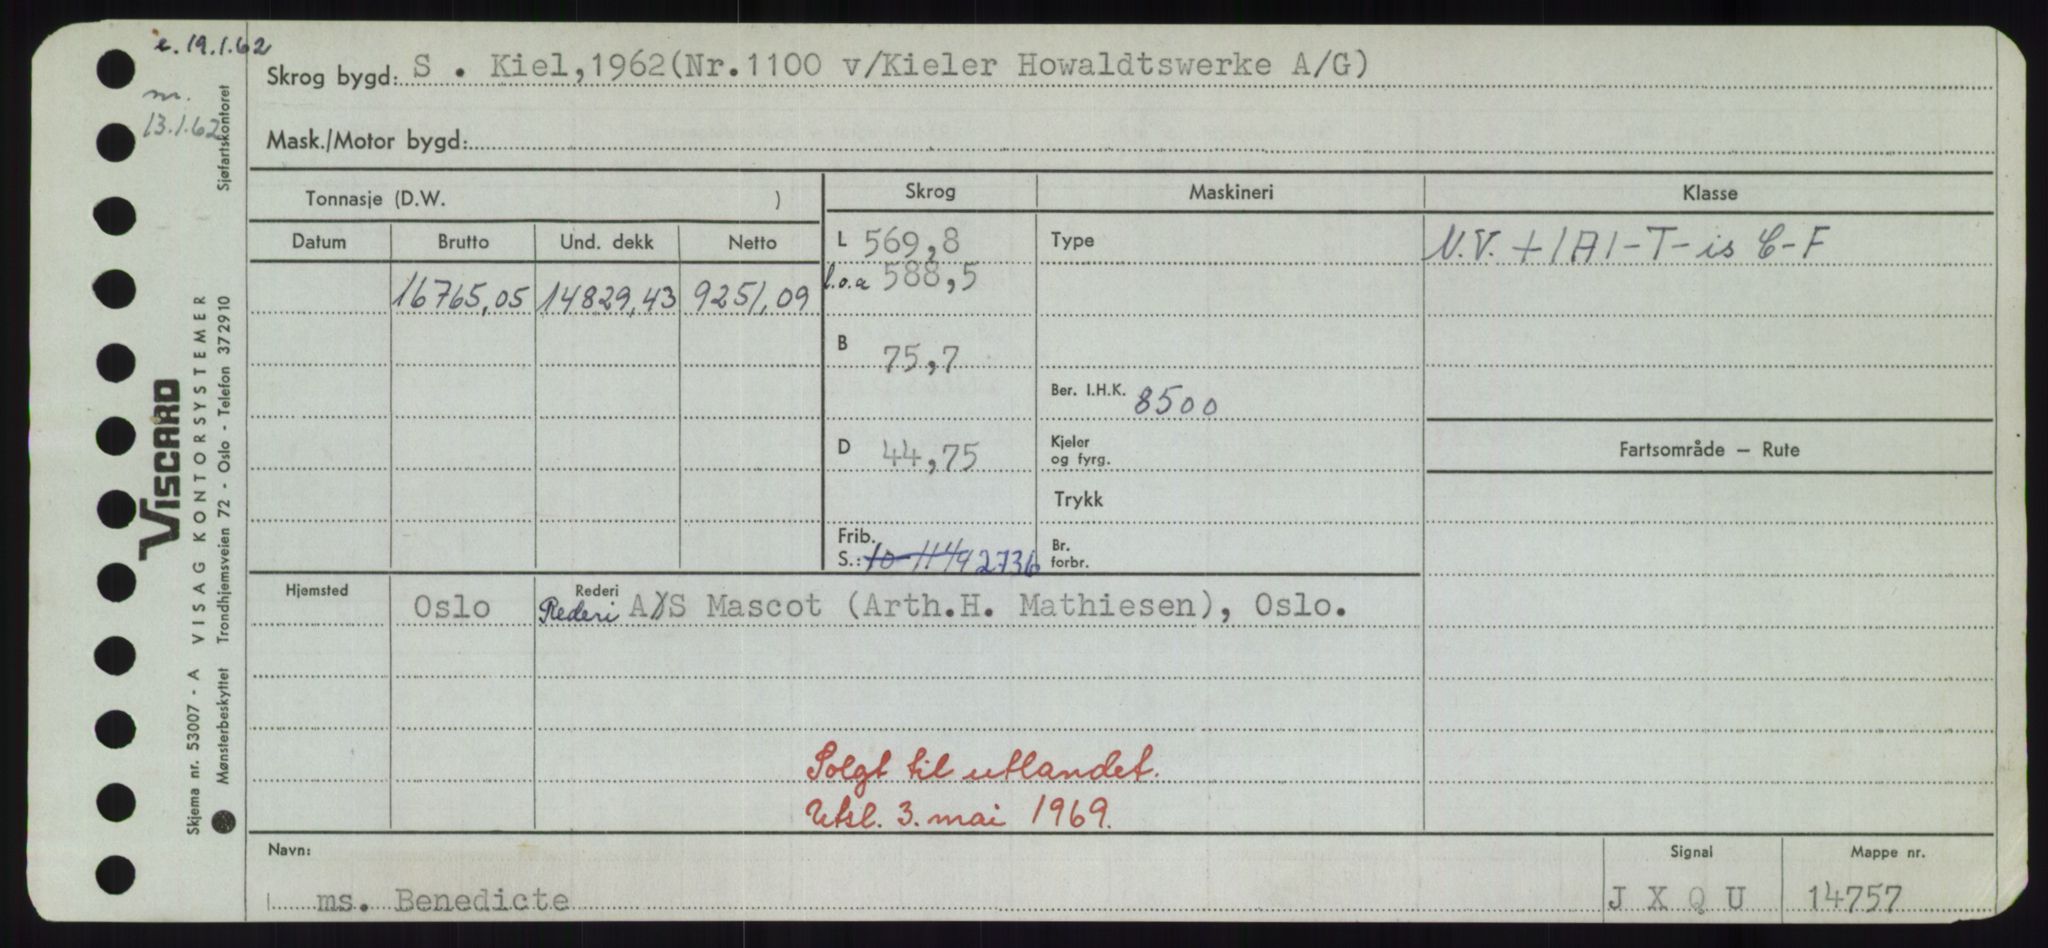 e. 19.1.62
m.
13.1.62
Sjøfartskontoret
Skrog bygd: S . Kiel,1962(Nr.1100 v/Kieler Howaldtswerke A/G)
Mask./Motor bygd:
Tonnasje (D.W. )
Skrog
Maskineri
Klasse
Datum Brutto Und. dekk Netto
16765,05 14829,43 9251,09
L 569,8
l.o.a 588,5
B 75,7
D 44,75
Frib.
S.: 2736
Type
Ber. I.H.K. 8500
Kjeler
og fyrg.
Trykk
Br.
forbr.
N.V. +1A1-T-is C-F
Fartsområde — Rute
Hjemsted
Oslo
Rederi
Rederi A/S Mascot (Arth.H. Mathiesen), Oslo.
Solgt til utlandet.
Utsl. 3. mai 1969.
Navn:
ms. Benedicte
Signal
J X Q U
Mappe nr.
14757
VISCARD
Skjema nr. 53007 - A VISAG KONTORSYSTEMER
Mønsterbeskyttet Trondhjemsveien 72 - Oslo - Telefon 372910